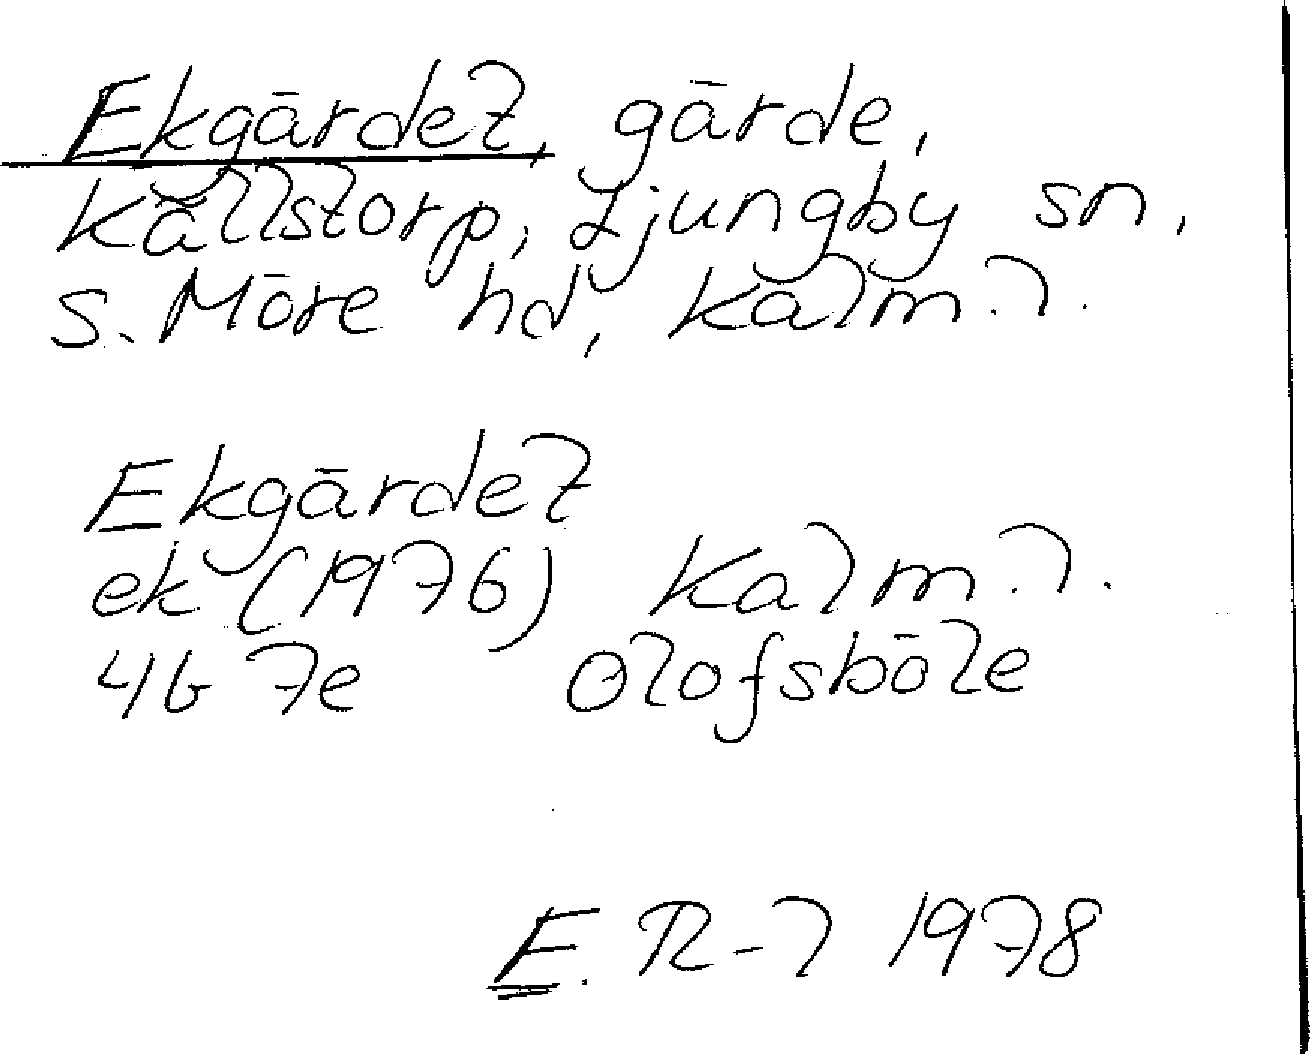 Ekgärdet, gärde,
Källstorp, Ljungby sn,
S. Möre hd, Kalm. l.
Ekgärdet
ek (1976) Kalm. l.
4G 7e Olofsböle
E. R-l 1978